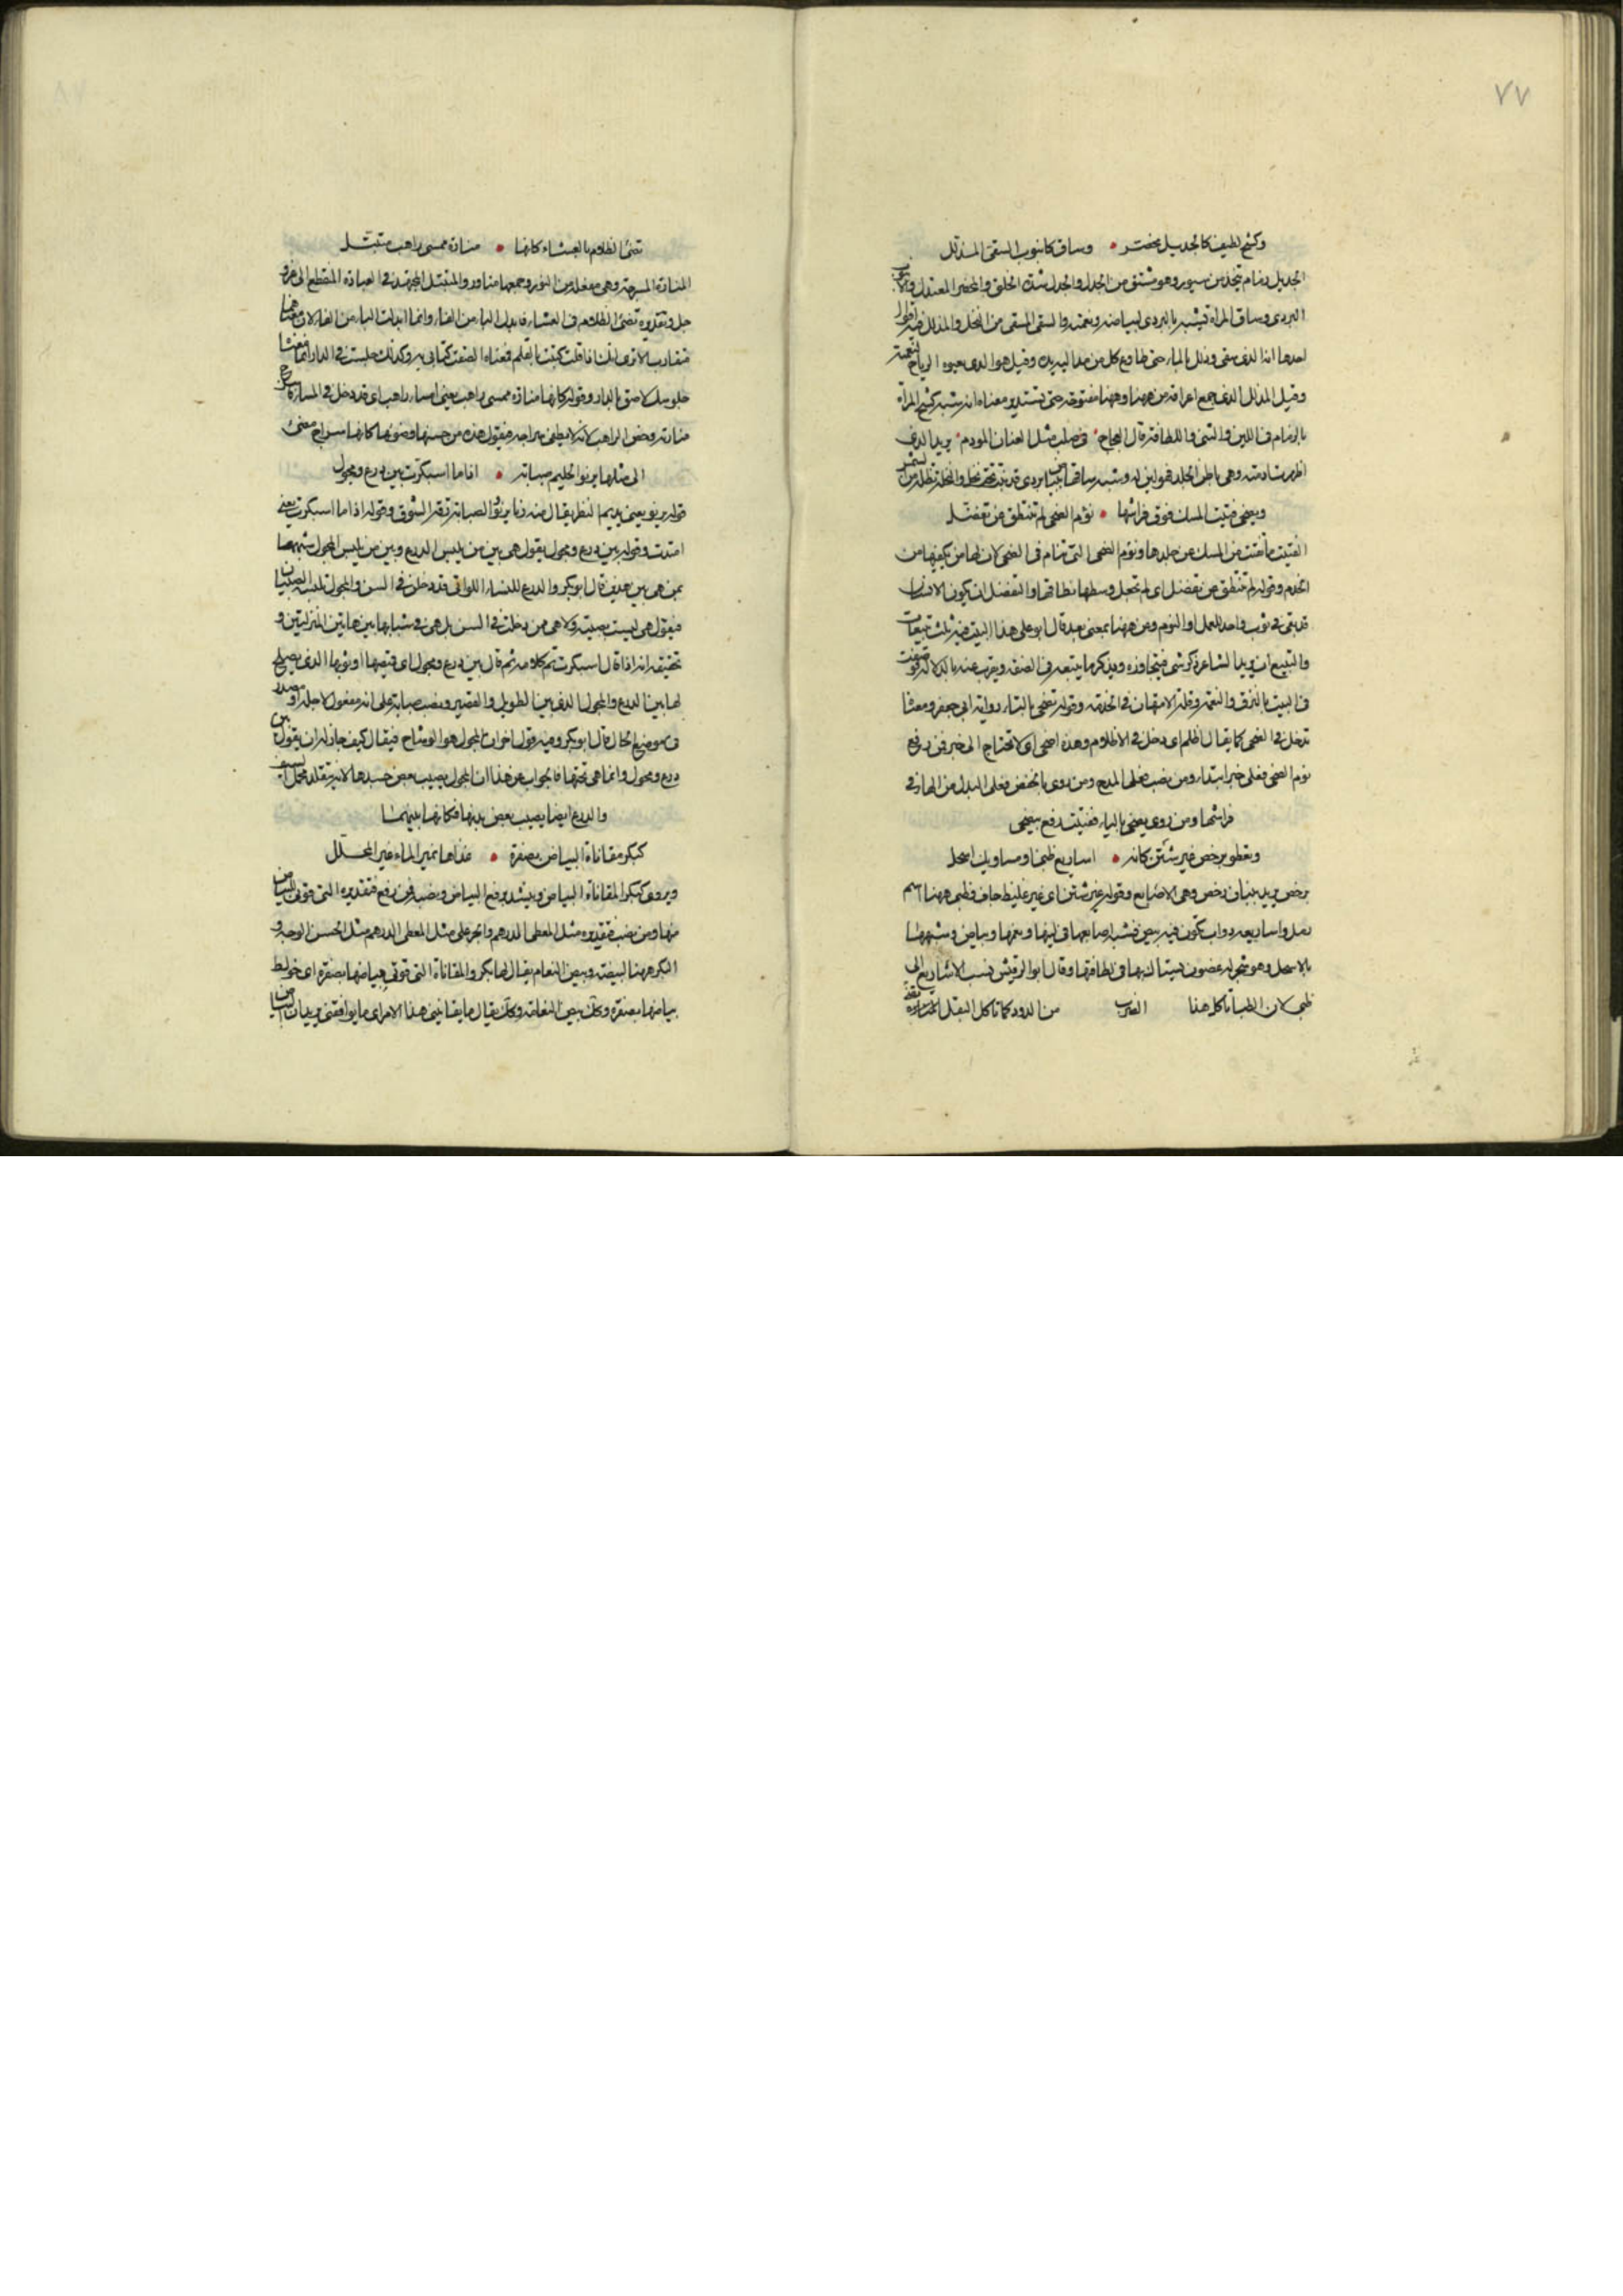 ٧٧
وكشح لطيف كالجديل مخصر • وساق كانبوب السقي المذلل
الجديل زمام يتخذ من سيور وهو مشتق من الجدل والجدل شدة الخلق والمخصر المعتدل والانبوب
البردي وساق المراة تشبه بالبردي لبياضه ونعمته والسقي المسقي من النخل والمذلل فيه اقوال
احدها انه الذي سقي وذلل بالماء حتى طاوع كل من مد اليه يده وقيل هو الذي الرياح لنعمته
وقيل المذلل الذي جمع من ههنا وههنا حتى تستدير ومعناه انه شبه كشح المراة
بالزمام في اللين والتثني واللطافة قال العجاج • في صلب مثل العنان المودم • يريد الذي
اظهرت ادمته وهي باطن الجلد فهو الين له وشبه ساقها ببردي قد نبت تحت نخل والنخل تظله من الشمس
ويضحي فتيت المسك فوق فراشها • نؤم الضحى لم تنتطق عن تفضل
الفتيت ما تفتت من المسك عن جلدها ونؤم الضحى التي تنام في الضحى لان لها من يكفيها من
الخدم وقوله لم تنتطق عن تفضل اي لم تجعل وسطها نطاقا والتفضل ان يكون الانسان
قد بقي في ثوب واحد للعمل او النوم وعن ههنا بمعنى بعد قال ابو علي هذا البيت فيه ثلث تتبيعات
والتتبيع ان يريد الشاعر ذكر شي فيتجاوزه ويذكر ما يتبعه في الصفة وينوب عنه بالدلالة
في البيت بالترف والنعمة وقلة الامتهان في الخدمة وقوله تضحي بالتاء رواية ابي جعفر ومعنا
تدخل في الضحى كما يقال اظلم اي دخل في الاظلام وهذه اضحى اي لا تحتاج الى خبر فمن رفع
نؤم الضحى فعلى خبر ابتداء ومن نصب فعلى المدح ومن روى بالخفض فعلى البدل من الهاء في
فراشها ومن روى يضحي بالياء ففتيت رفع بيضحي
وتعطو برخص غير شثن كانه • اساريع ظبي او مساويك اسحل
برخص يريد ببنان رخص وهي الاصابع وقوله غير شثن اي غير غليظ جاف وظبي ههنا اسم
رمل واساريعه دواب تكون فيه بيض فشبه اصابعها في لينها ونعمها وبياض وشبهها
بالاسحل وهو شجر له غصون يستاك بها في لطافتها وقال ابو الرقيش نسب الاساريع الى
ظبي لان الظبا تاكل هذا الضرب من الدود كما تاكل البقل
تضي الظلام بالعشاء كانها • منارة ممسى راهب متبتل
المنارة المسرجة وهي مفعلة من النور وجمعها مناور والمتبتل المجتهد في العبادة المنقطع الى الله عز و
جل وتقديره تضي الظلام في العشاء فابدل الباء من الفاء وانما ابدلت الباء من الفاء لان معناهما
متقارب الا ترى انك اذا قلت كتبت بالقلم فمعناه الصقت كتابي به وكذلك جلست في الدار انما معناه
جلوسك لاصق بالدار وقوله كانها منارة ممسى راهب يعني امساء راهب اي قد دخل في المساء
منارته وخص الراهب لانه لا يطفي سراجه فيقول هذه من حسنها وضوئها كانها سراج مضئ
الى مثلها يرنو الحليم صبابة • اذا ما اسبكرت بين درع ومجول
قوله يرنو يعني يديم النظر يقال منه رنا يرنو والصبابة رقة الشوق وقوله اذا ما اسبكرت يعني
امتدت وقوله بين درع ومجول يقول هي بين من يلبس الدرع وبين من يلبس المجول شبهها
بمن هي بين هذين قال ابو بكر والدرع للنساء اللواتي قد دخلن في السن والمجول تلبسه الصبيان
فيقول هي ليست بصبية ولا هي ممن دخلت في السن بل هي في شبابها بين هاتين المنزلتين و
تحقيقه انه اذا قال اسبكرت تم كلامه ثم قال بين درع ومجول اي قميصها او ثوبها الذي يصلح
لها بين الدرع والمجول الذي بين الطويل والقصير ونصب صبابة على انه مفعول لاجله او مصدر
في موضع الحال قال ابو بكر وفيه قول اخر ان المجول هو الوشاح فيقال كيف جاز له ان يقول بين
درع ومجول وانما هي تحتها فالجواب عن هذا ان المجول يصيب بعض جسدها لانه يتقلد
والدرع ايضا يصيب بعض بدنها فكانها بينهما
كبكر مقاناة البياض بصفرة • غذاها نمير الماء غير المحلل
ويروى كبكر المقاناة البياض وينشد برفع البياض ونصبه فمن رفع فتقديره التي قوني البياض
منها ومن نصب فتقديره مثل المعطي الدرهم والجر على مثل المعطي الدرهم مثل الحسن الوجه و
البكر ههنا البيضة وبيض النعام يقال لها بكر والمقاناة التي قوني بياضها بصفرة اي خولط
بياضها بصفرة وكذلك بيض النعامة وكذلك يقال ما يقانيني هذا الامر اي ما يوافقني